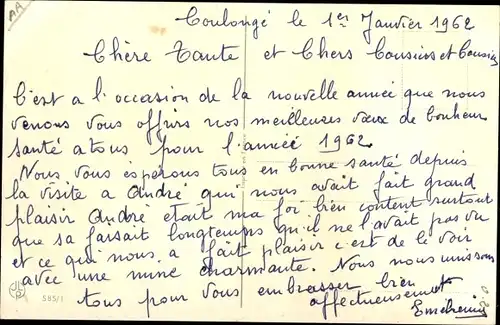 AA
Coulongé le 1er Janvier 1962
Chère Tante et Chers Cousins et Cousines
C'est a l'occasion de la nouvelle année que nous
venons vous offrirs nos meilleures vœux de bonheur
santé a tous pour l'année 1962.
Nous vous espérons tous en bonne santé depuis
la visite a André qui nous avait fait grand
plaisir André etait ma foi bien content surtout
que sa faisait longtemps qu'il ne l'avait pas vu
et ce qui nous a fait plaisir c'est de le voir
avec une mine charmante. Nous nous unissons
tous pour vous embrasser bien
affectueusement
585/1